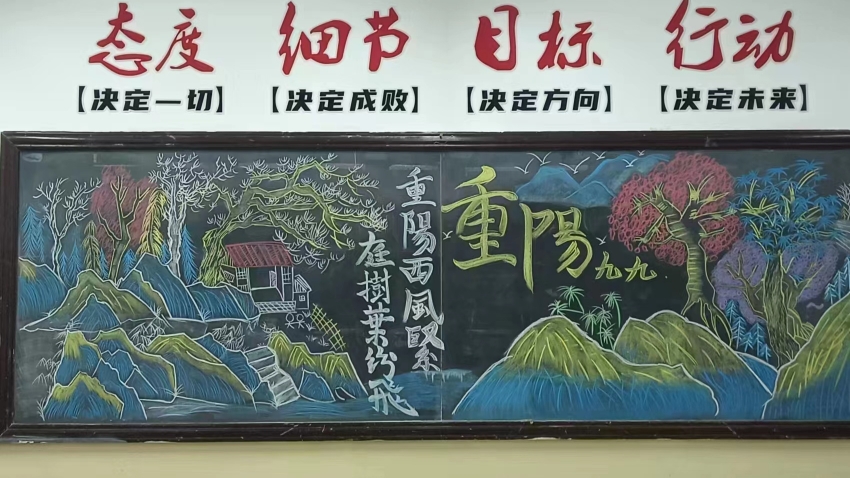 态度 细节 目标 行动
【决定一切】 【决定成败】 【决定方向】 【决定未来】
重陽西風緊
庭樹葉紛飛
重陽
九九